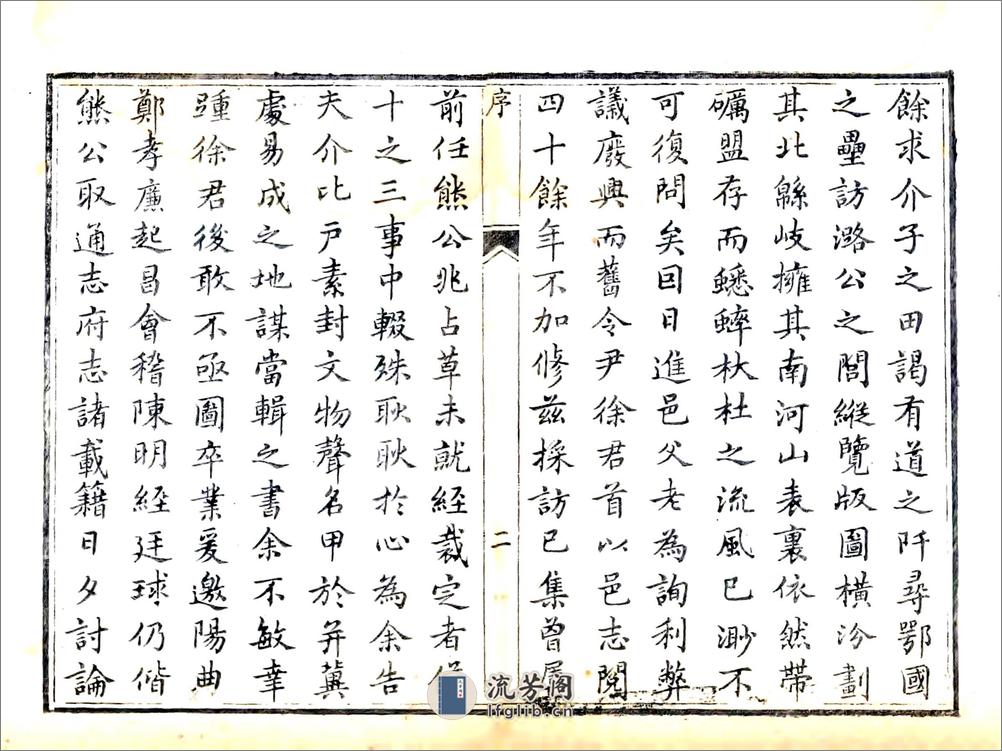 餘求介子之田謁有道之阡尋鄂國
之壘訪潞公之閭縱覽版圖橫汾劃
其北緜岐擁其南河山表裏依然帶
礪盟存而蟋蟀杕杜之流風已渺不
可復問矣囙日進邑父老為詢利弊
議廢興而舊令尹徐君首以邑志闕
四十餘年不加修茲採訪已集曾屬
序
二
前任熊公兆占草未就經裁定者
十之三事中輟殊耿耿於心為余告
夫介比戶素封文物聲名甲於并冀
處易成之地謀當輯之書余不敏幸
踵徐君後敢不亟圖卒業爰邀陽曲
鄭孝廉起昌會稽陳明經廷球仍偕
熊公取通志府志諸載籍日夕討論
流芳阁
lfglib.cn